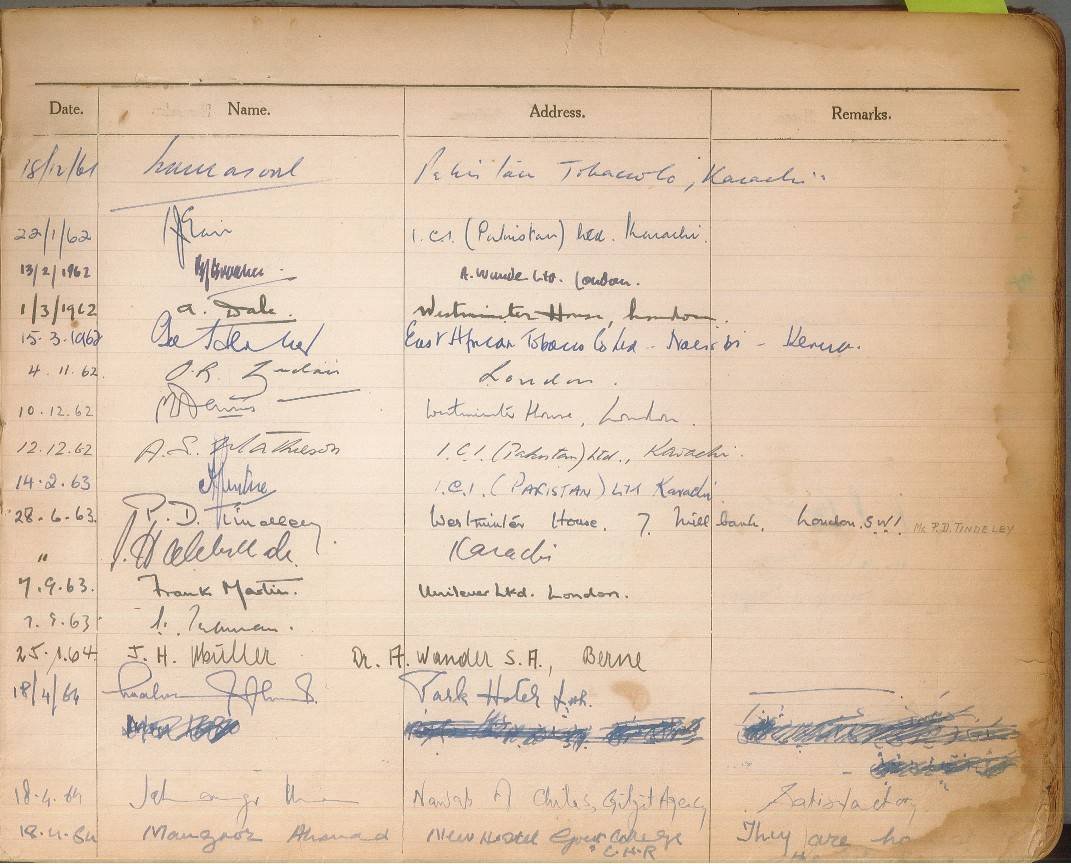 Date. Name. Address. Remarks.
18/12/61 Pakistan Tobacco Co, Karachi
22/1/62 I.C.I. (Pakistan) Ltd. Karachi.
13/2/1962 A. Wander Ltd. London.
1/3/1962 A. Dale. Westminster House, London.
15.3.1962 East African Tobacco Co Ltd - Nairobi - Kenya.
4.11.62 London.
10.12.62 Westminster House, London.
12.12.62 A.S. Mathieson I.C.I. (Pakistan) Ltd., Karachi.
14.2.63 I.C.I. (PAKISTAN) LTD Karachi
28.6.63. P.D. Tindeley Westminster House. 7, Millbank, London. S.W.1 Mr P.D. TINDELEY
" Karachi
7.9.63. Frank Martin. Unilever Ltd. London.
7.9.63
25.1.64 J. H. Müller Dr. A. Wander S.A., Berne
18/4/64 Park Hotel
18.4.64 Nawab of Chilas, Gilgit Agency Satisfactory
18.4.64 Manzoor Ahmad New Hostel Govt College They are